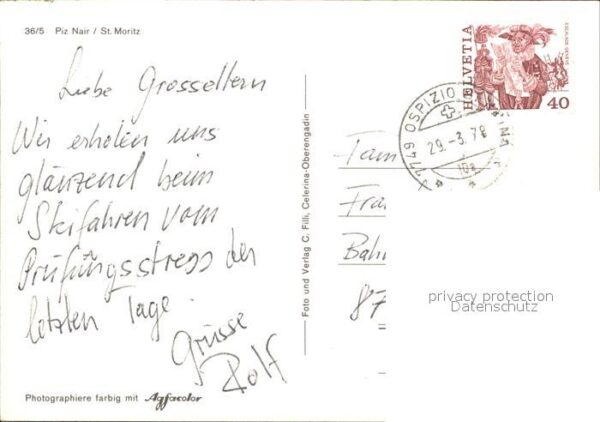 36/5 Piz Nair / St. Moritz
Liebe Grosseltern
Wir erholen uns
glänzend beim
Skifahren vom
Prüfungsstress der
letzten Tage.
Grüsse
Rolf
Photographiere farbig mit Agfacolor
Foto und Verlag C. Filli, Celerina-Oberengadin
HELVETIA
ESCALADE GENÈVE
40
7749 OSPIZIO
29.-3.78
10a
Fam
Fra
Bahn
87
privacy protection
Datenschutz